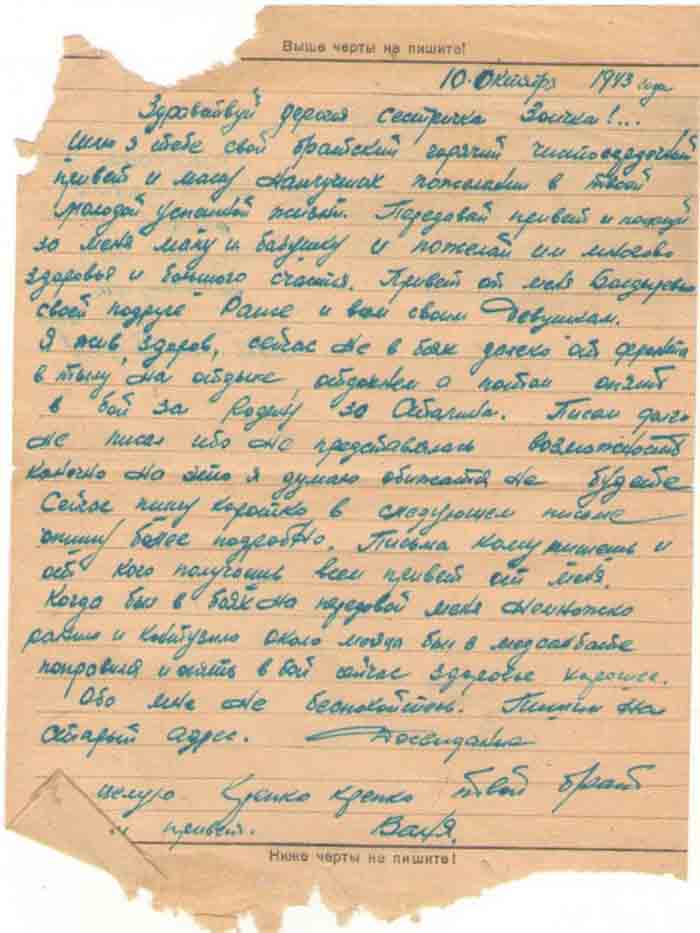 Выше черты не пишите!
10 Октября 1943 года
Здравствуй дорогая сестричка Зоичка!...
Шлю я тебе свой братский горячий чистосердечный
привет и массу наилучших пожеланий в твоей
молодой успешной жизни. Передавай привет и поцелуй
за меня маму и бабушку и пожелай им многово
здоровья и большого счастья. Привет от меня
своей подруге Раисе и всем своим девушкам.
Я жив, здоров, сейчас не в боях далеко от фронта
в тылу на отдыхе, отдохнем а потом опять
в бой за Родину за Сталина. Писем долго
не писал ибо не представлялась возможность
конечно на это я думаю обижатся не будете
Сейчас пишу коротко в следующем письме
опишу более подробно. Письма кому пишешь и
от кого получаешь всем привет от меня.
Когда был в боях на передовой меня немножко
ранило и контузило около месяца был в медсанбате
поправился и опять в бой сейчас здоровье хорошее.
Обо мне не беспокойтесь. Пишите на
старый адрес. Досвидание
целую крепко крепко твой брат
и привет. Ваня.
Ниже черты не пишите!